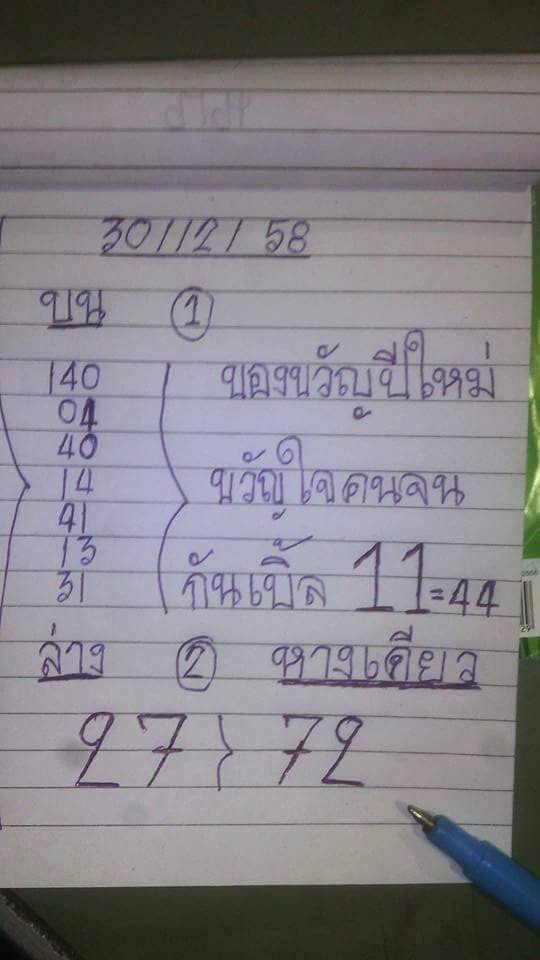 30/12/58
บน ①
140 ของขวัญปีใหม่
04
40
14 ขวัญใจคนจน
41
13
31 กันเบิ้ล 11=44
ล่าง ② หางเดียว
27 } 72